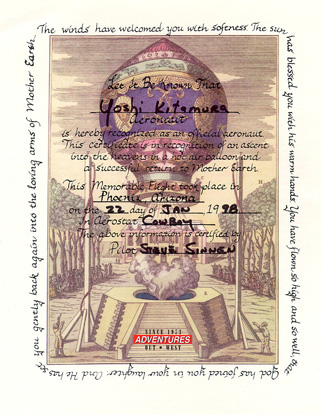 The winds have welcomed you with softness. The sun
has blessed you with his warm hands. You have flown so high and so well, that
God has joined you in your laughter. And He has set
you gently back again into the loving arms of Mother Earth.
Let it Be Known That
Yoshi Kitamura
Aeronaut
is hereby recognized as an official aeronaut
This certificate is in recognition of an ascent
into the heavens in a hot-air balloon and
a successful return to Mother Earth.
This Memorable Flight took place in
Phoenix, Arizona
on the 22 day of JAN 1998
in Aerostat COWBOY
The above information is certified by
Pilot STEVE SINNEN
SINCE 1973
ADVENTURES
OUT • WEST